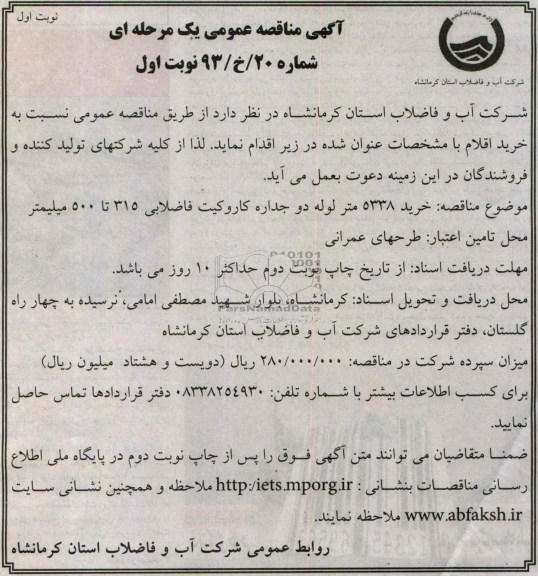 نوبت اول
آگهی مناقصه عمومی یک مرحله ای
شماره ۲۰/خ/۹۳ نوبت اول
شرکت آب و فاضلاب استان کرمانشاه
شرکت آب و فاضلاب استان کرمانشاه در نظر دارد از طریق مناقصه عمومی نسبت به
خرید اقلام با مشخصات عنوان شده در زیر اقدام نماید. لذا از کلیه شرکتهای تولید کننده و
فروشندگان در این زمینه دعوت بعمل می آید.
موضوع مناقصه: خرید ۵۳۳۸ متر لوله دو جداره کاروکیت فاضلابی ۳۱۵ تا ۵۰۰ میلیمتر
محل تامین اعتبار: طرحهای عمرانی
مهلت دریافت اسناد: از تاریخ چاپ نوبت دوم حداکثر ۱۰ روز می باشد.
محل دریافت و تحویل اسناد: کرمانشاه، بلوار شهید مصطفی امامی، نرسیده به چهار راه
گلستان، دفتر قراردادهای شرکت آب و فاضلاب استان کرمانشاه
میزان سپرده شرکت در مناقصه: ۲۸۰/۰۰۰/۰۰۰ ریال (دویست و هشتاد میلیون ریال)
برای کسب اطلاعات بیشتر با شماره تلفن: ۰۸۳۳۸۲۵٤۹۳۰ دفتر قراردادها تماس حاصل
نمایید.
ضمنا متقاضیان می توانند متن آگهی فوق را پس از چاپ نوبت دوم در پایگاه ملی اطلاع
رسانی مناقصات بنشانی : http:/iets.mporg.ir ملاحظه و همچنین نشانی سایت
www.abfaksh.ir ملاحظه نمایند.
روابط عمومی شرکت آب و فاضلاب استان کرمانشاه
ParsNamadData